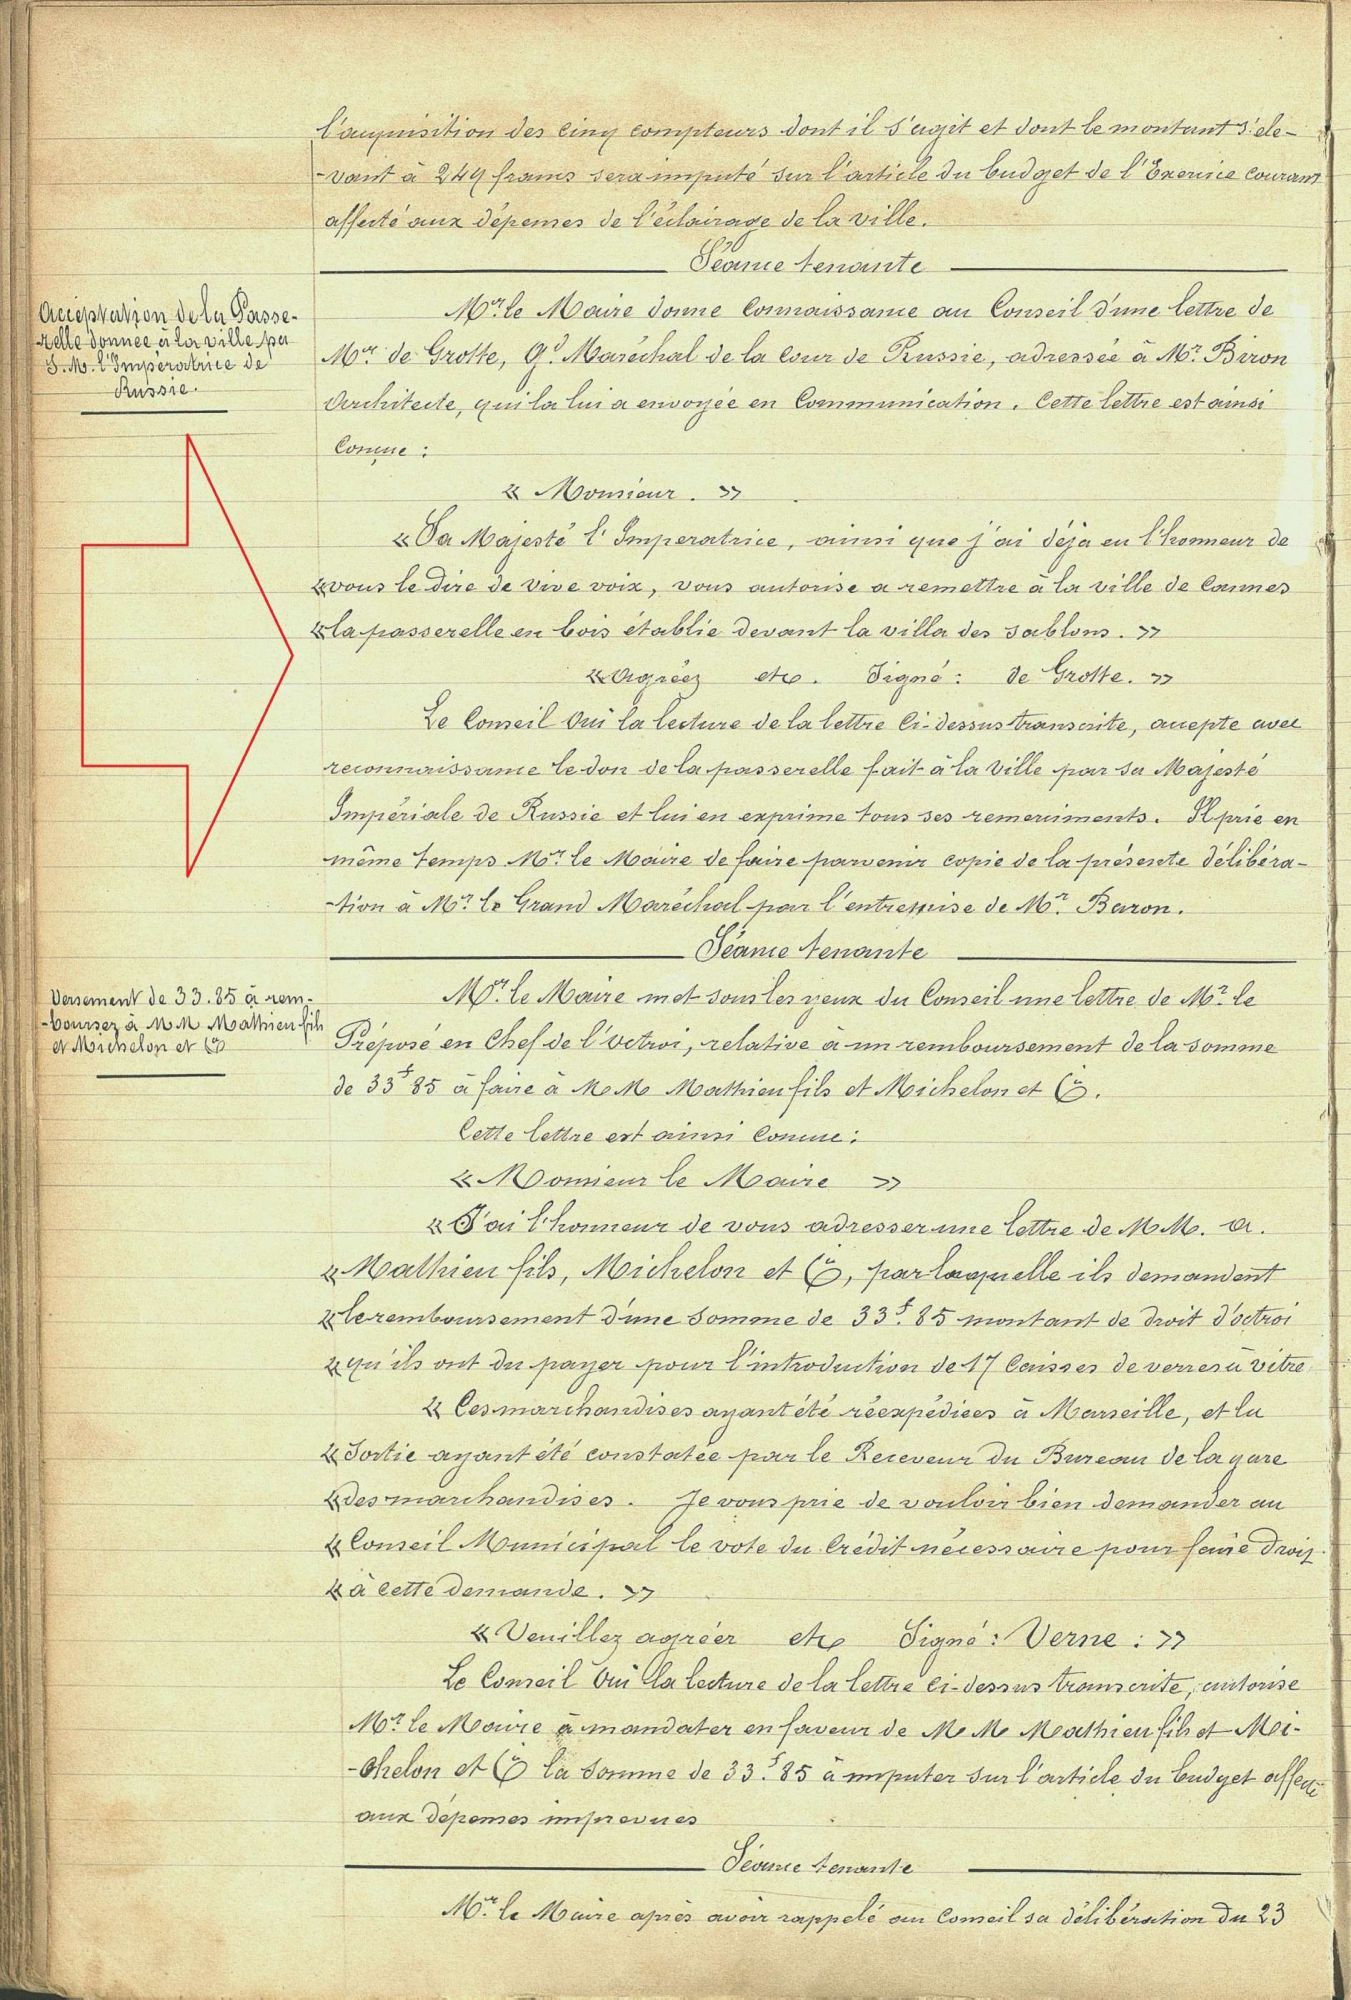 l'acquisition des cinq compteurs dont il s'agit et dont le montant s'éle-
-vant à 249 francs sera imputé sur l'article du budget de l'Exercice courant
affecté aux dépenses de l'éclairage de la ville.
Séance tenante
Acceptation de la Passe-
relle donnée à la ville par
S. M. l'Impératrice de
Russie.
Mr. le Maire donne Connaissance au Conseil d'une lettre de
Mr. de Grotte, Gd. Maréchal de la Cour de Russie, adressée à Mr. Biron
Architecte, qui la lui a envoyée en Communication. Cette lettre est ainsi
Conçue :
« Monsieur. »
« Sa Majesté l'Imperatrice, ainsi que j'ai déja eu l'honneur de
« vous le dire de vive voix, vous autorise a remettre à la ville de Cannes
« la passerelle en bois établie devant la villa des sablons. »
« Agréez etc. Signé : de Grotte. »
Le Conseil Oui la lecture de la lettre Ci-dessus transcrite, accepte avec
reconnaissance le don de la passerelle fait à la Ville par sa Majesté
Impériale de Russie et lui en exprime tous ses remerciments. Il prie en
même temps Mr. le Maire de faire parvenir copie de la présente délibéra-
-tion à Mr. le Grand Maréchal par l'entremise de Mr. Baron.
Séance tenante
Versement de 33.85 à rem-
-bourser à MM Mathieu fils
et Michelon et Cie
Mr. le Maire met sous les yeux du Conseil une lettre de Mr. le
Préposé en Chef de l'Octroi, relative à un remboursement de la somme
de 33f 85 à faire à MM Mathieu fils et Michelon et Cie.
Cette lettre est ainsi Conçue :
« Monsieur le Maire »
« J'ai l'honneur de vous adresser une lettre de MM. A.
« Mathieu fils, Michelon et Cie, par laquelle ils demandent
« le remboursement d'une somme de 33f. 85 montant de droit d'octroi
« qu'ils ont du payer pour l'introduction de 17 Caisses de verres à vitre
« Ces marchandises ayant été réexpédiées à Marseille, et la
« Sortie ayant été constatée par le Receveur du Bureau de la gare
« des marchandises. Je vous prie de vouloir bien demander au
« Conseil Municipal le vote du Crédit nécessaire pour faire droit
« à cette demande. »
« Veuillez agréer etc Signé : Verne : »
Le Conseil Oui la lecture de la lettre ci-dessus transcrite, autorise
Mr. le Maire à mandater en faveur de MM Mathieu fils et Mi-
-chelon et Cie la somme de 33.f 85 à imputer sur l'article du budget affecté
aux dépenses imprevues
Séance tenante
Mr. le Maire après avoir rappelé au Conseil sa délibération du 23